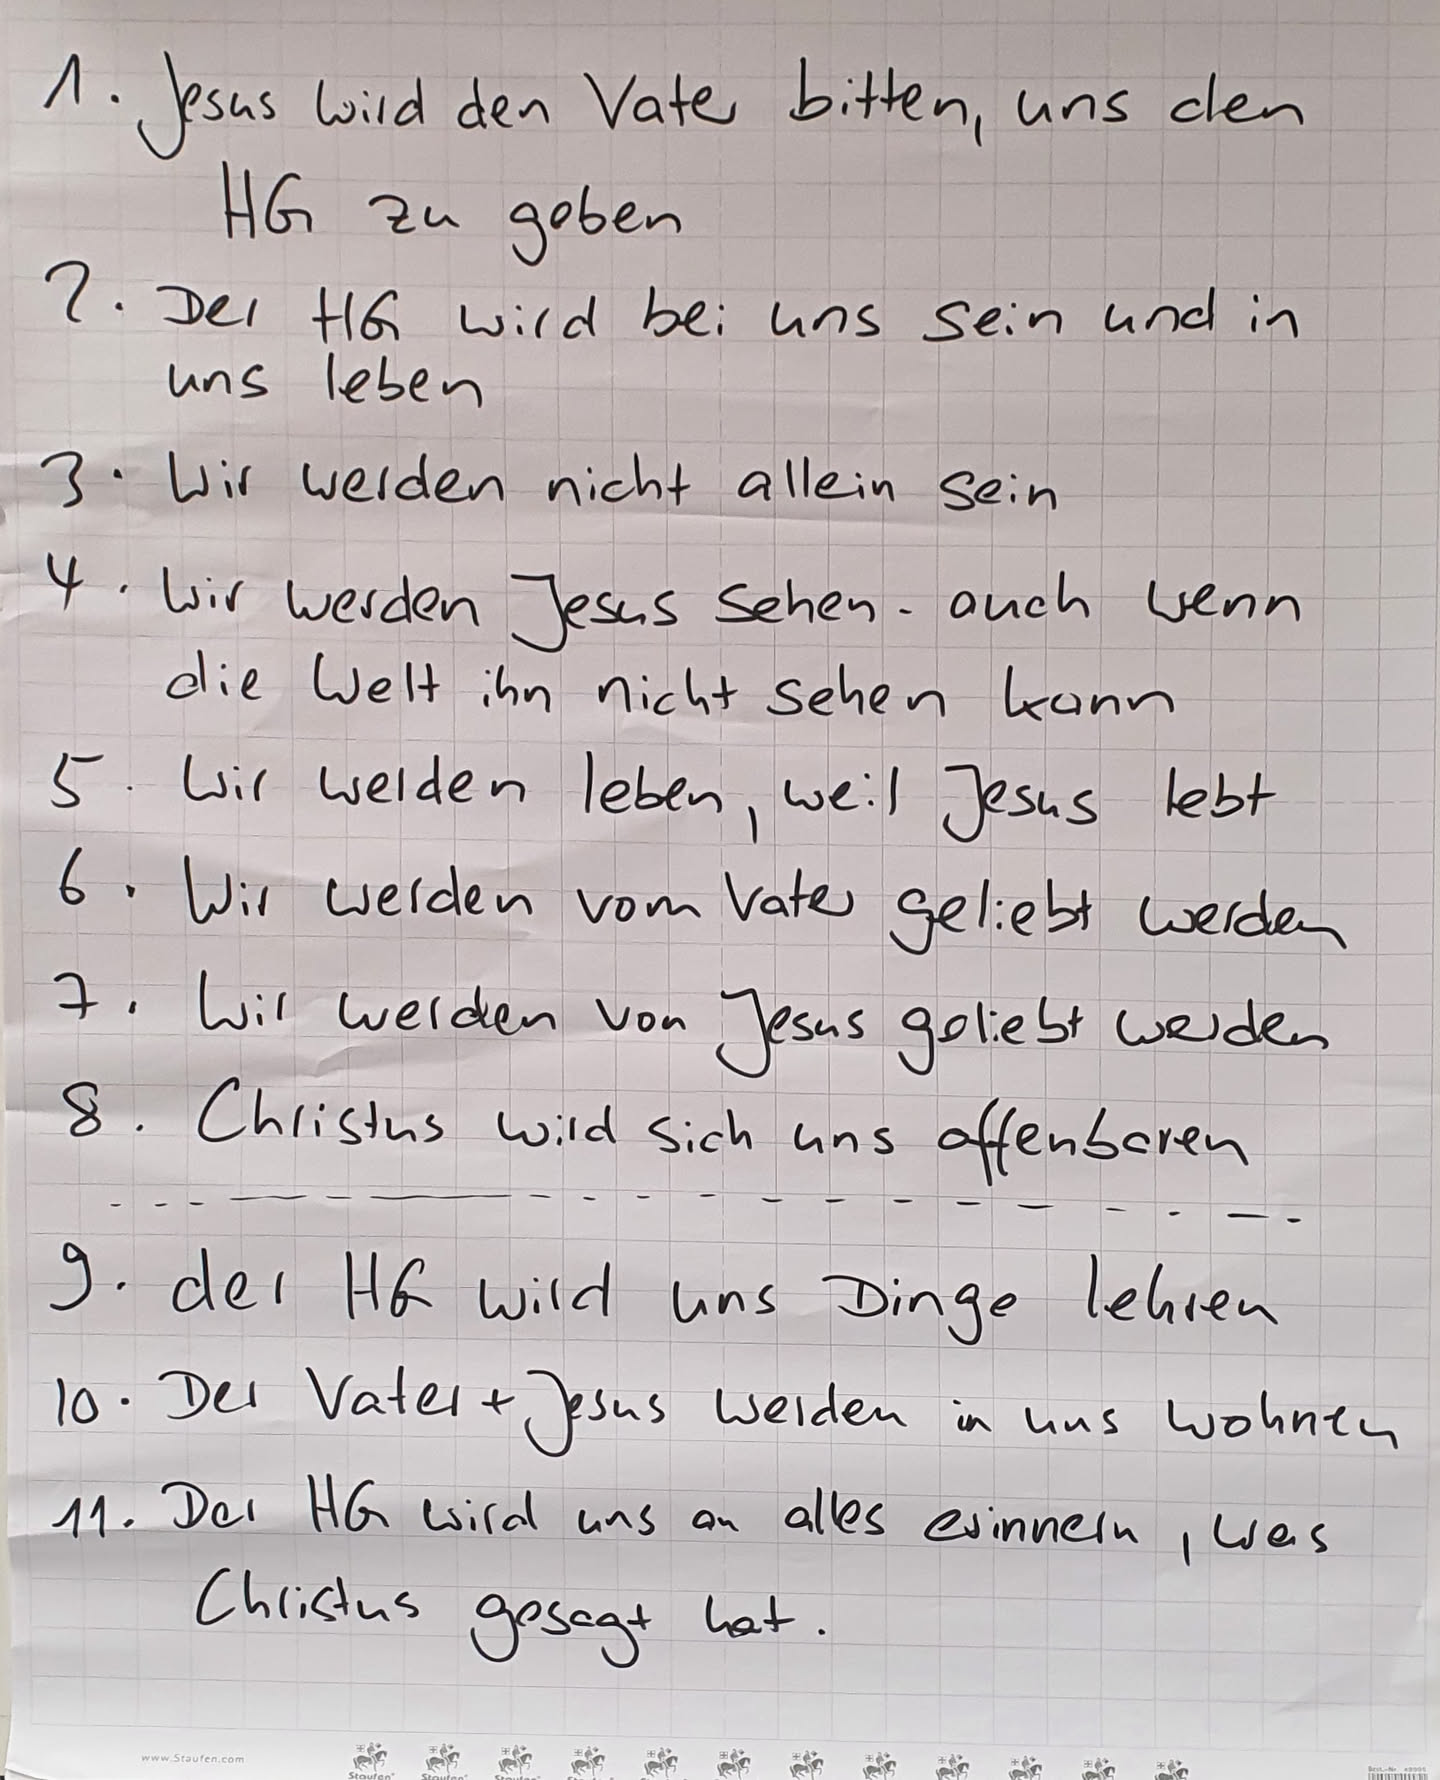 1. Jesus wird den Vater bitten, uns den
HG zu geben
2. Der HG wird bei uns sein und in
uns leben
3. Wir werden nicht allein sein
4. Wir werden Jesus sehen - auch wenn
die Welt ihn nicht sehen kann
5. Wir werden leben, weil Jesus lebt
6. Wir werden vom Vater geliebt werden
7. Wir werden von Jesus geliebt werden
8. Christus wird sich uns offenbaren
9. der HG wird uns Dinge lehren
10. Der Vater + Jesus werden in uns wohnen
11. Der HG wird uns an alles erinnern, was
Christus gesagt hat.
www.Staufen.com
Staufen Staufen Staufen